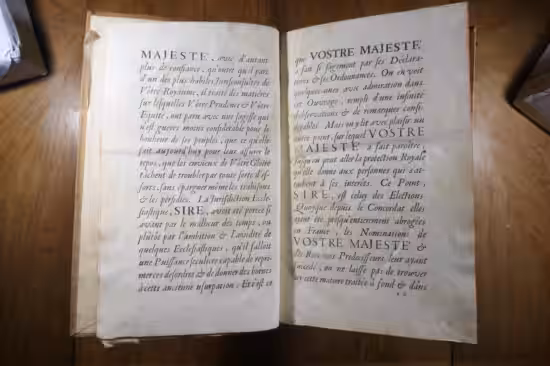 MAJESTÉ, avec d'autant
plus de confiance, qu'outre qu'il part
d'un des plus habiles Jurisconsultes de
Vôtre Royaume, il traite des matières
sur lesquelles Vôtre Prudence & Vôtre
Equité, ont paru avec une sagesse qui
n'est guerres moins considerable pour le
bonheur de ses peuples, que ce qu'elle
fait aujourd'huy pour leur assurer le
repos, que les envieux de Vôtre Gloire
tâchent de troubler par toute sorte d'ef-
forts, sans épargner même les trahisons
& les perfidies. La Jurisdiction Eccle-
siastique, SIRE, avoit été portée si
avant par le malheur des temps, ou
plûtôt par l'ambition & l'avidité de
quelques Ecclesiastiques, qu'il falloit
une Puissance seculiere capable de repri-
mer ces desordres & de donner des bornes
à cette ancienne usurpation: Et c'est ce
que VOSTRE MAJESTÉ
a fait si sagement par ses Declara-
tions & ses Ordonnances. On en voit
quelques-unes avec admiration dans
cet Ouvrage, rempli d'une infinité
d'observations & de remarques consi-
derables. Mais on y lit avec plaisir un
autre point, sur lequel VOSTRE
MAJESTÉ a fait paroître,
jusqu'où peut aller la protection Royale
qu'elle donne aux personnes qui s'at-
tachent à ses interêts. Ce Point,
SIRE, est celuy des Elections.
Quoyque depuis le Concordat elles
ayent été presqu'entierement abrogées
en France, & les Nominations de
VOSTRE MAJESTÉ &
des Rois vos Predecesseurs, leur ayant
succedé, on ne laisse pas de trouver
icy cette matiere traitée à fond & dans